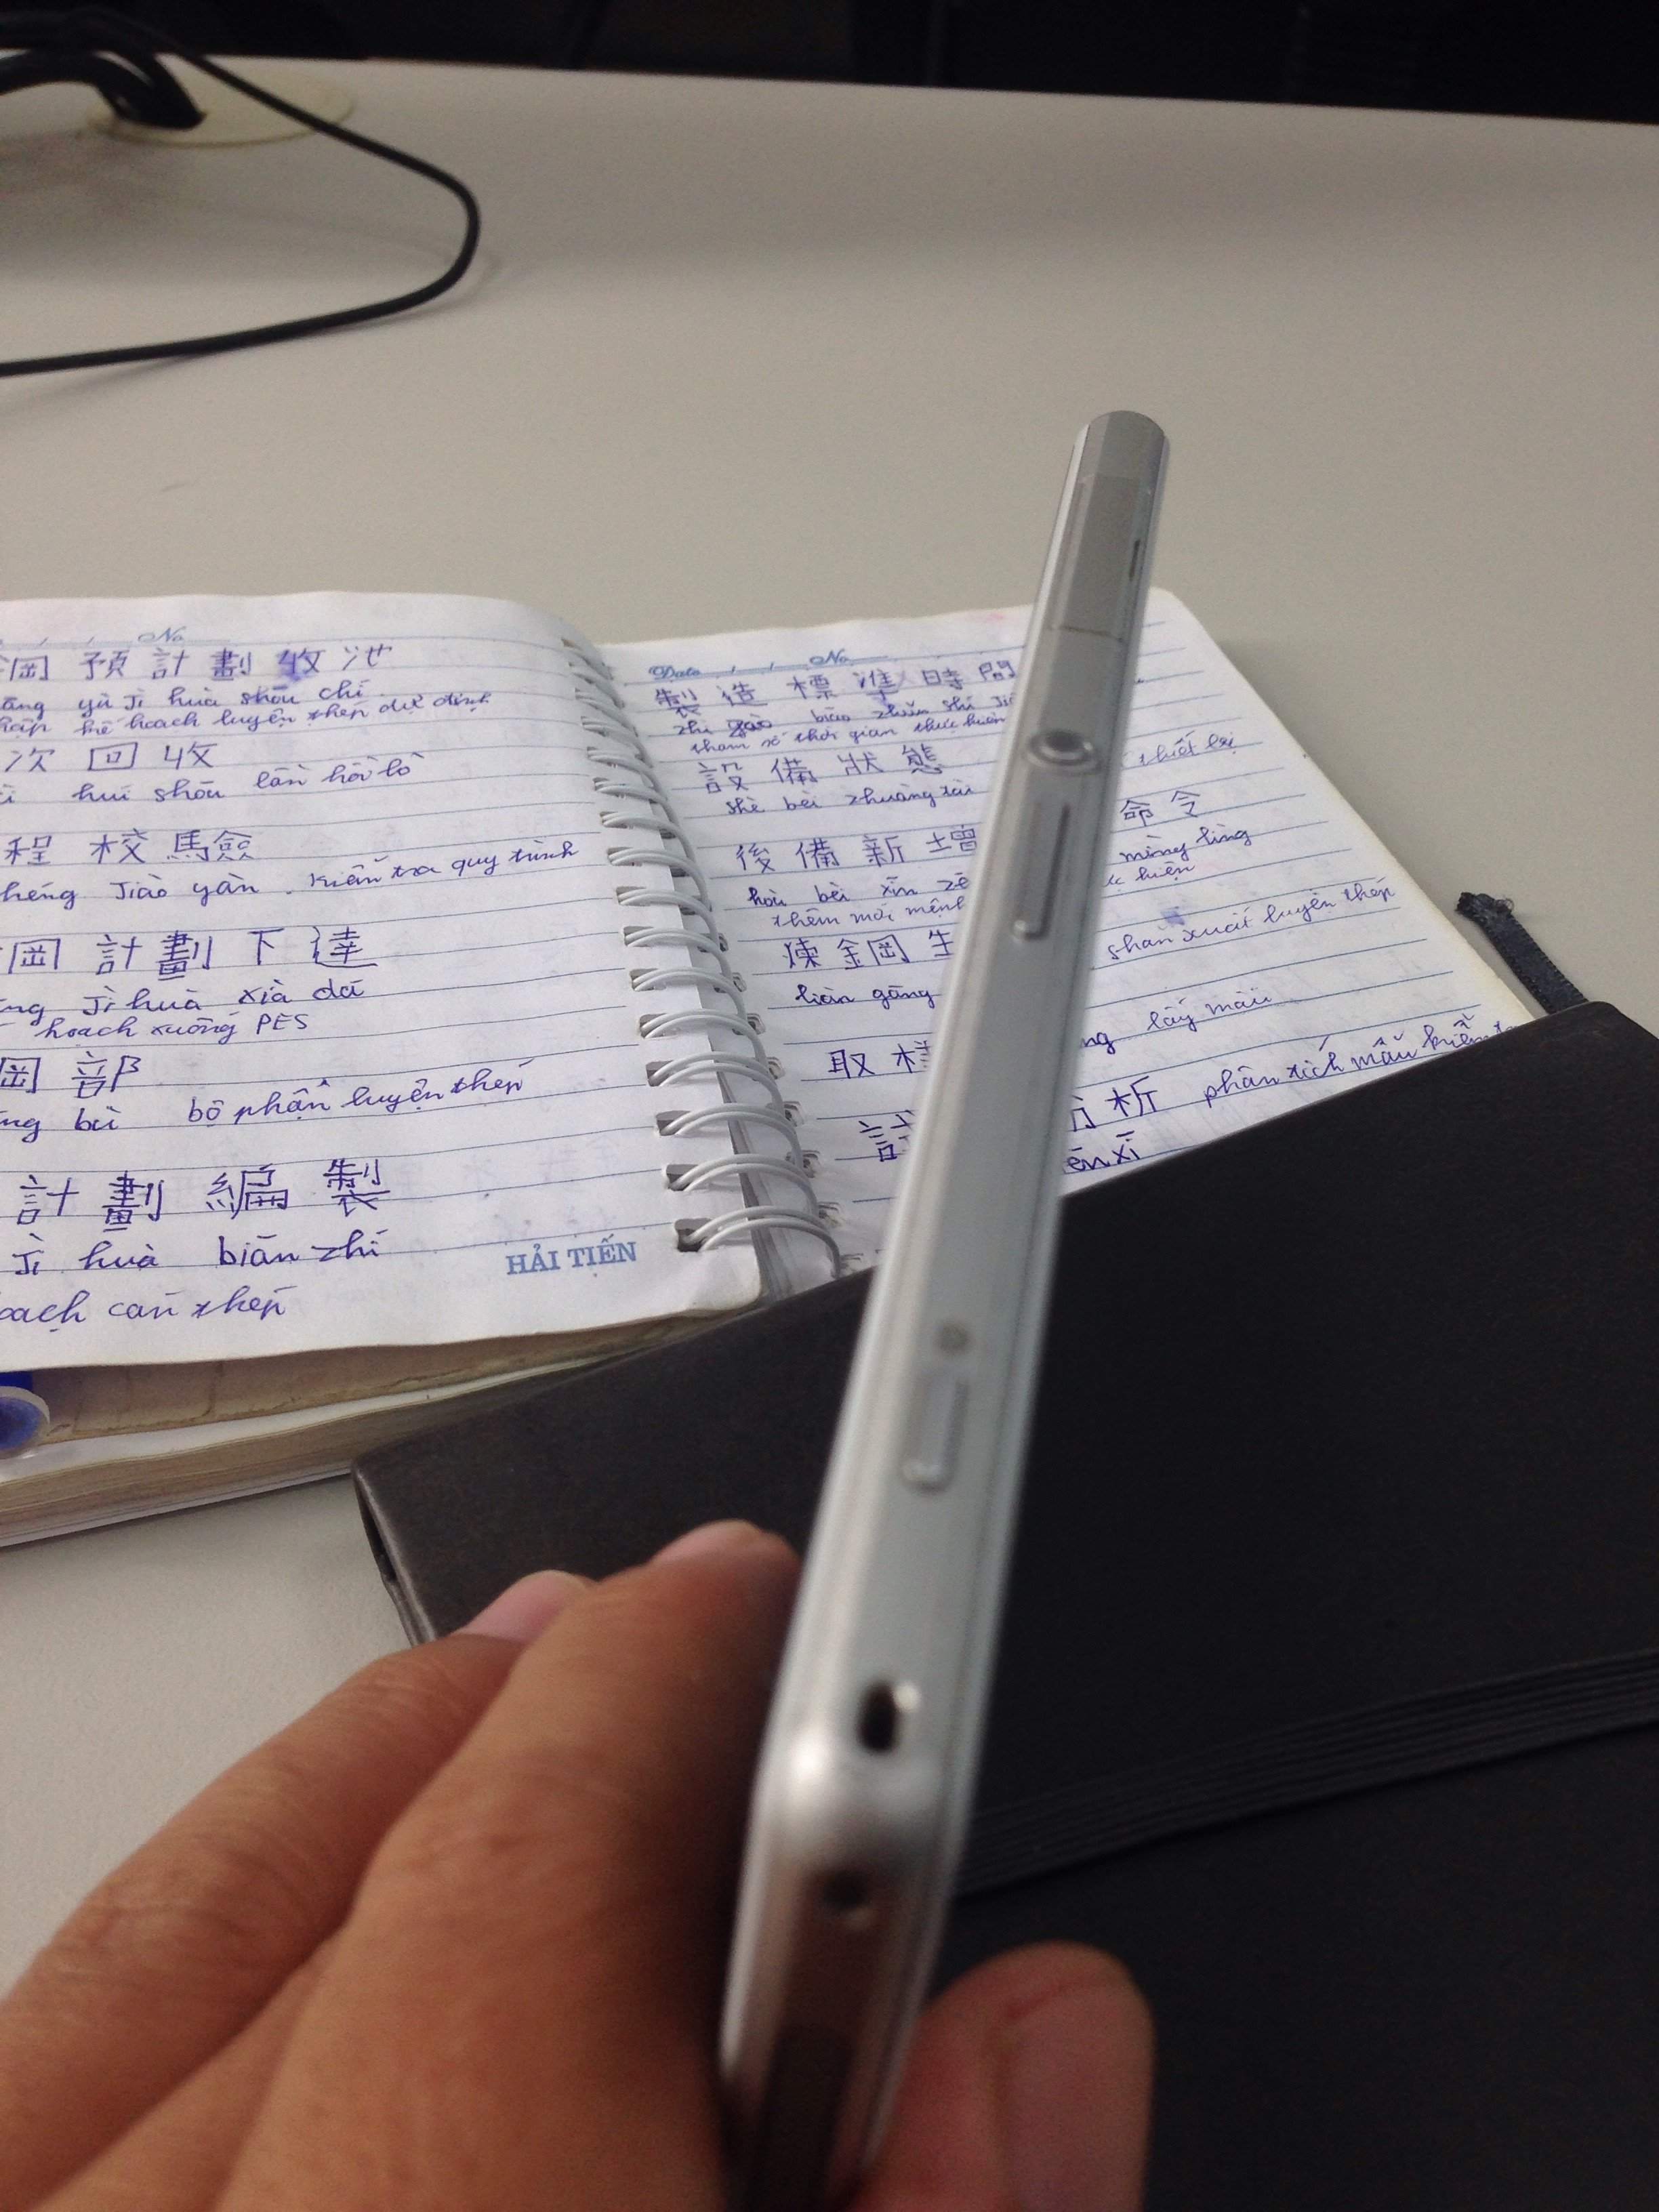 No
岡 預 計 劃 收 池
yù Jì huà shōu chí
kế hoạch luyện thép dự định
次 回 收
huí shōu lần hồi lò
程 校 馬僉
Jiào yàn . Kiểm tra quy trình
岡 計 劃 下 達
Jì huà xià dá
hoạch xuống PES
岡 部
bù bộ phận luyện thép
計 劃 編 製
Jì huà biān zhí
cán thép
HẢI TIẾN
Date No
製 造 標 準 時 間
zhì biāo zhǔn shí
tham số thời gian thực hiện
設 備 狀 態 thiết bị
shè bèi zhuàng tài
後 備 新 增 命 令
hòu bèi xīn mìng lìng
thêm mới mệnh hiện
煉 金岡 生 shản xuất luyện thép
liàn gāng
取 lấy mẫu
析 phân tích mẫu kiểm
xī